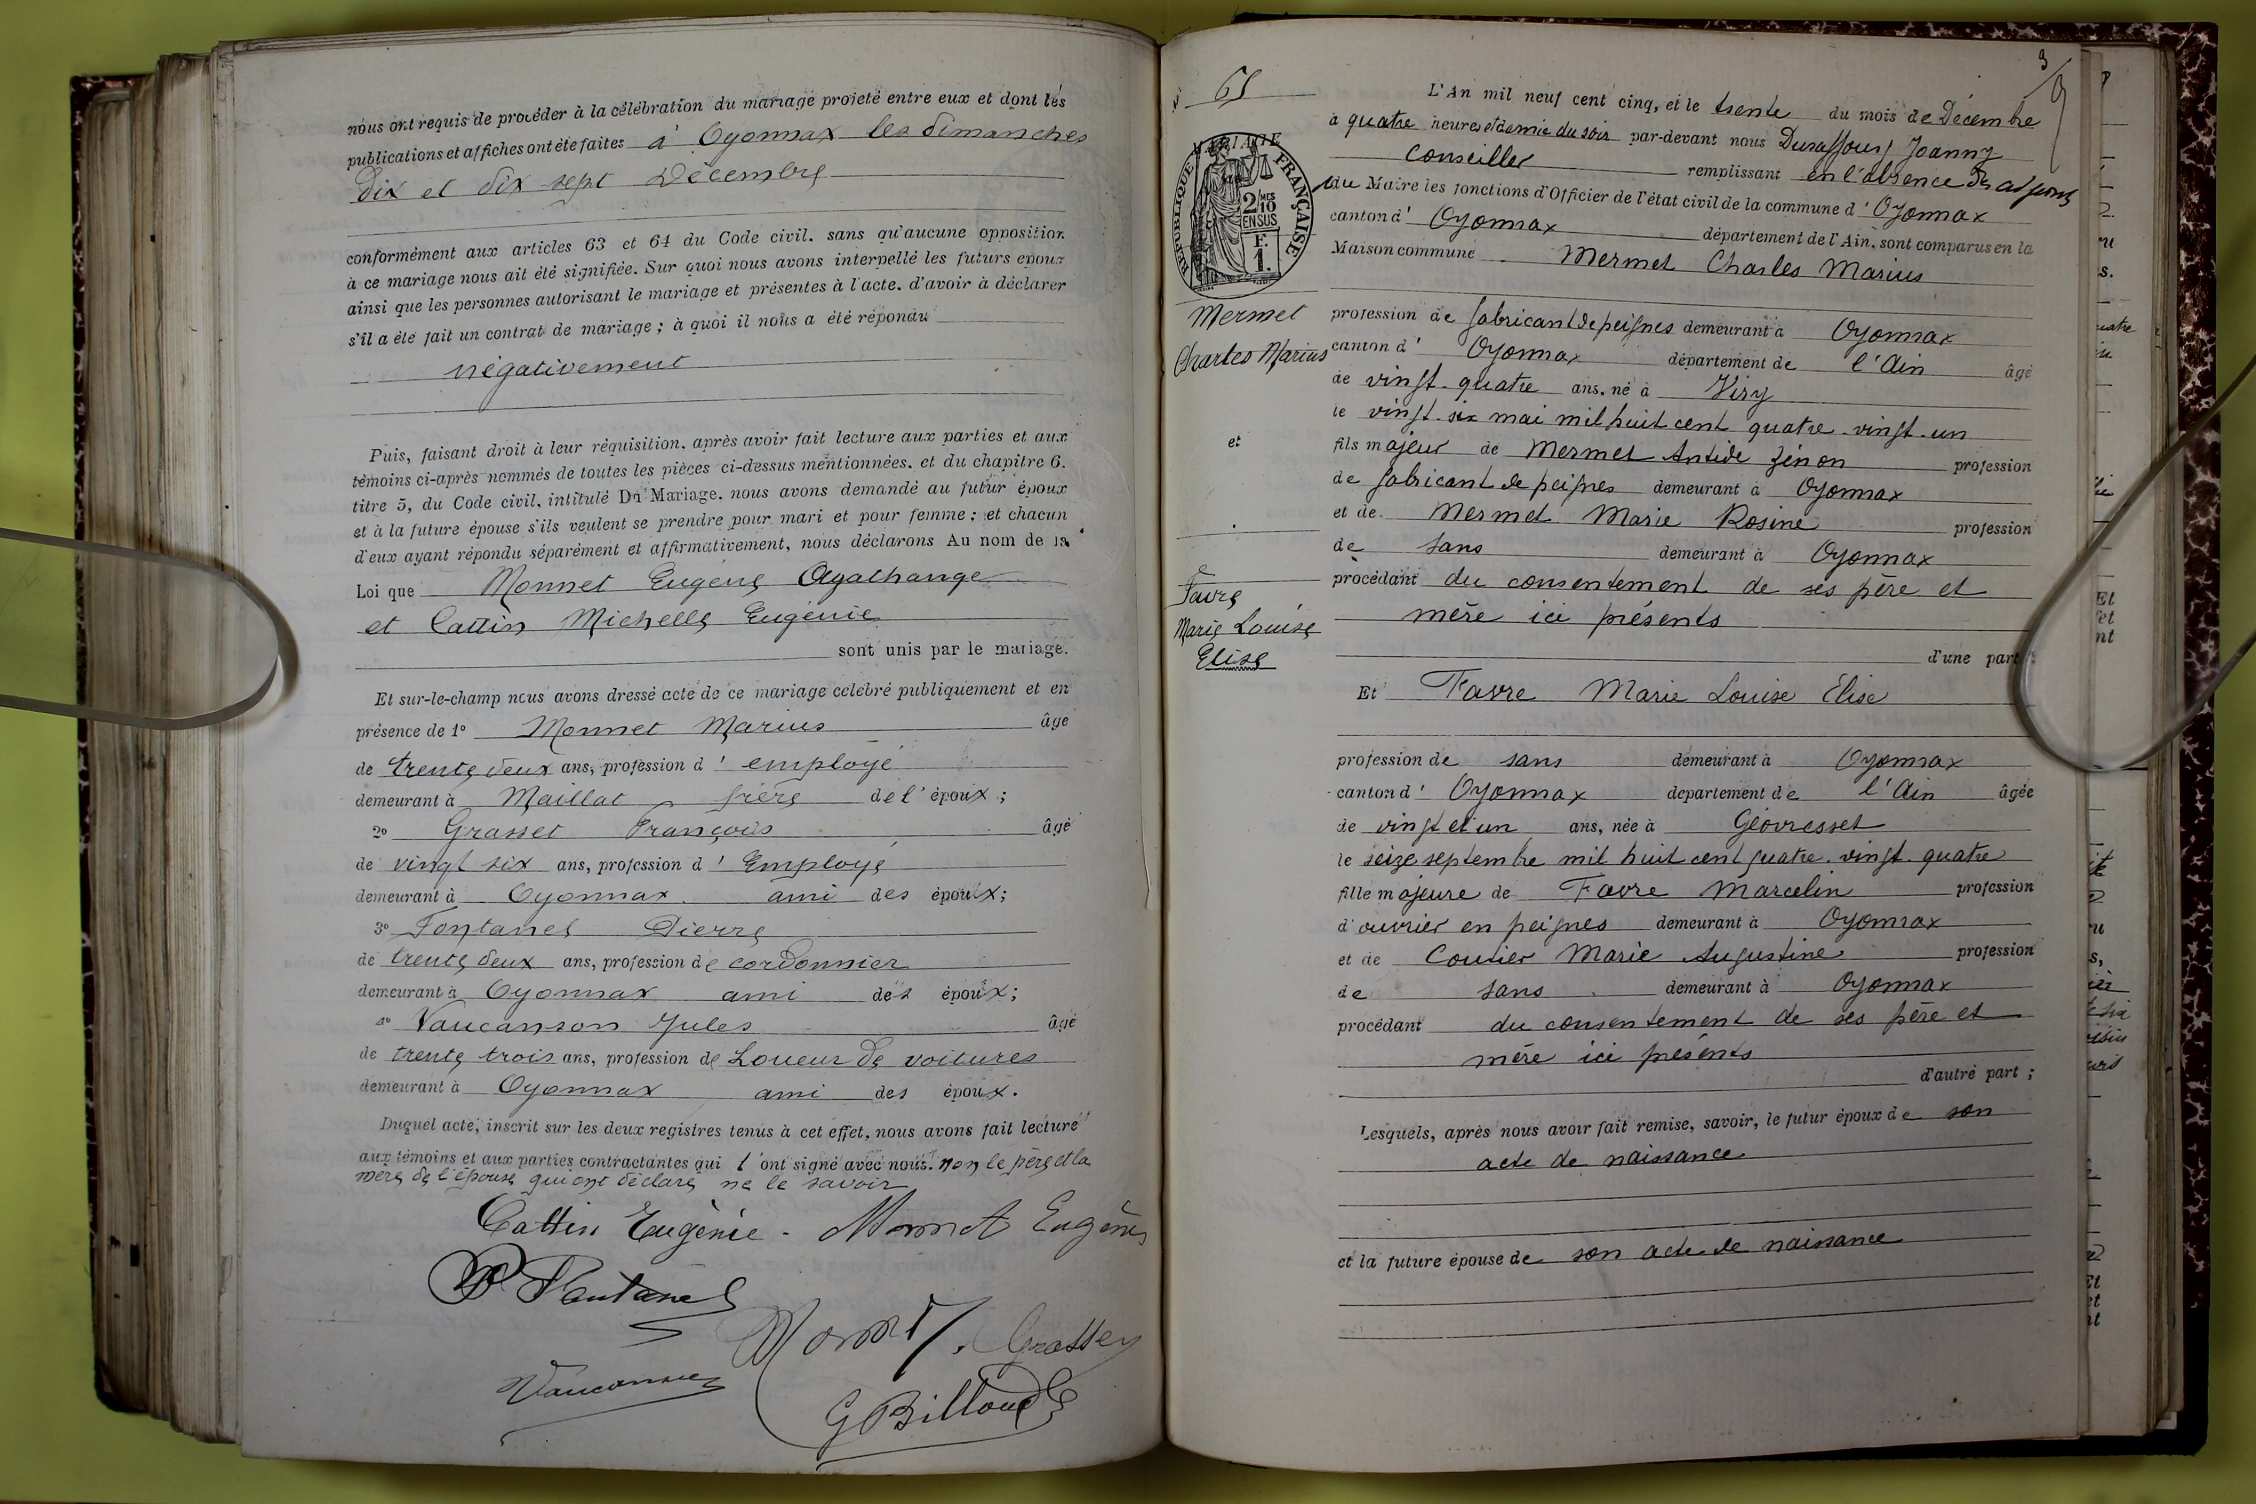 nous ont requis de procéder à la célébration du mariage projeté entre eux et dont les
publications et affiches ont été faites à Oyonnax les dimanches
dix et dix sept Décembre
conformément aux articles 63 et 64 du Code civil, sans qu'aucune opposition
à ce mariage nous ait été signifiée. Sur quoi nous avons interpellé les futurs époux
ainsi que les personnes autorisant le mariage et présentes à l'acte, d'avoir à déclarer
s'il a été fait un contrat de mariage ; à quoi il nous a été répondu
négativement
Puis, faisant droit à leur réquisition, après avoir fait lecture aux parties et aux
témoins ci-après nommés de toutes les pièces ci-dessus mentionnées, et du chapitre 6,
titre 5, du Code civil, intitulé Du Mariage, nous avons demandé au futur époux
et à la future épouse s'ils veulent se prendre pour mari et pour femme ; et chacun
d'eux ayant répondu séparément et affirmativement, nous déclarons Au nom de la
Loi que Monnet Eugène Agathange
et Cattin Michelle Eugénie
sont unis par le mariage.
Et sur-le-champ nous avons dressé acte de ce mariage célébré publiquement et en
présence de 1º Monnet Marius âgé
de trente deux ans, profession d'employé
demeurant à Maillat frère de l'époux ;
2º Grasset François âgé
de vingt six ans, profession d'Employé
demeurant à Oyonnax ami des époux ;
3º Fontanel Pierre
de trente deux ans, profession de cordonnier
demeurant à Oyonnax ami des époux ;
4º Vaucanson Jules âgé
de trente trois ans, profession de Loueur de voitures
demeurant à Oyonnax ami des époux.
Duquel acte, inscrit sur les deux registres tenus à cet effet, nous avons fait lecture
aux témoins et aux parties contractantes qui l'ont signé avec nous. non le père et la
mère de l'épouse qui ont déclaré ne le savoir
Cattin Eugénie - Monnet Eugène
P Fontanel
Monnet Grasset
Vaucanson
G Billoud
61
MARIAGE
RÉPUBLIQUE FRANÇAISE
2/10 MES
EN SUS
F.
1.
Mermet
Charles Marius
et
Favre
Marie Louise
Elise
L'An mil neuf cent cinq, et le trente du mois de Décembre
à quatre heures et demie du soir par-devant nous Duraffourg Joanny
conseiller remplissant en l'absence des adjoints
du Maire les fonctions d'Officier de l'état civil de la commune d'Oyonnax
canton d'Oyonnax département de l'Ain, sont comparus en la
Maison commune Mermet Charles Marius
profession de fabricant de peignes demeurant à Oyonnax
canton d'Oyonnax département de l'Ain âgé
de vingt-quatre ans, né à Viry
le vingt-six mai mil huit cent quatre-vingt-un
fils majeur de Mermet Antide Zénon profession
de fabricant de peignes demeurant à Oyonnax
et de Mermet Marie Rosine profession
de sans demeurant à Oyonnax
procédant du consentement de ses père et
mère ici présents
d'une part ;
Et Favre Marie Louise Elise
profession de sans demeurant à Oyonnax
canton d'Oyonnax département de l'Ain âgée
de vingt et un ans, née à Géovresset
le seize septembre mil huit cent quatre-vingt-quatre
fille majeure de Favre Marcelin profession
d'ouvrier en peignes demeurant à Oyonnax
et de Marie Augustine profession
de sans demeurant à Oyonnax
procédant du consentement de ses père et
mère ici présents
d'autre part ;
Lesquels, après nous avoir fait remise, savoir, le futur époux de son
acte de naissance
et la future épouse de son acte de naissance